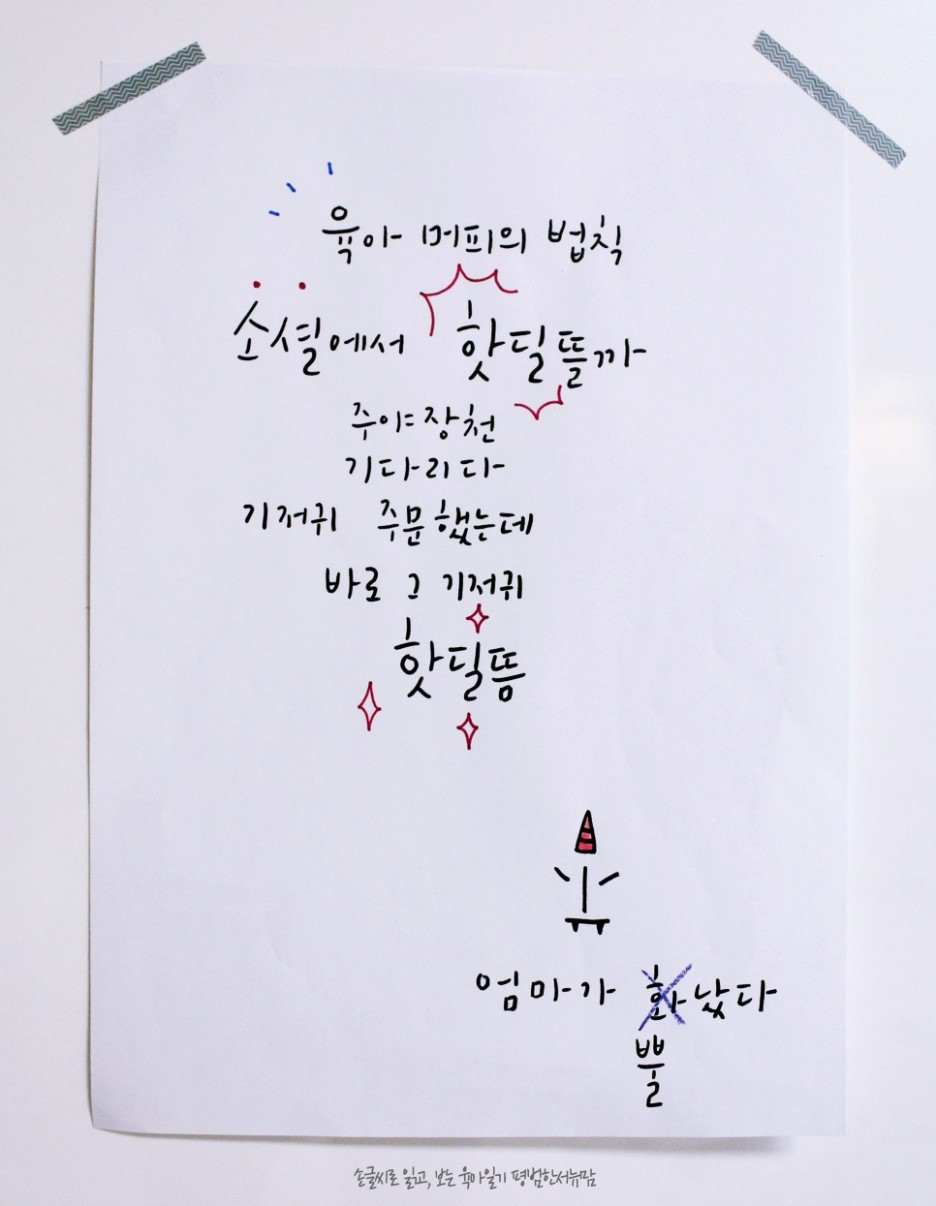 육아 머피의 법칙
소셜에서 핫딜뜰까
주야장천
기다리다
기저귀 주문했는데
바로 그 기저귀
핫딜뜸
엄마가 화났다
뿔
손글씨로 읽고, 보는 육아일기 평범한서뉴맘